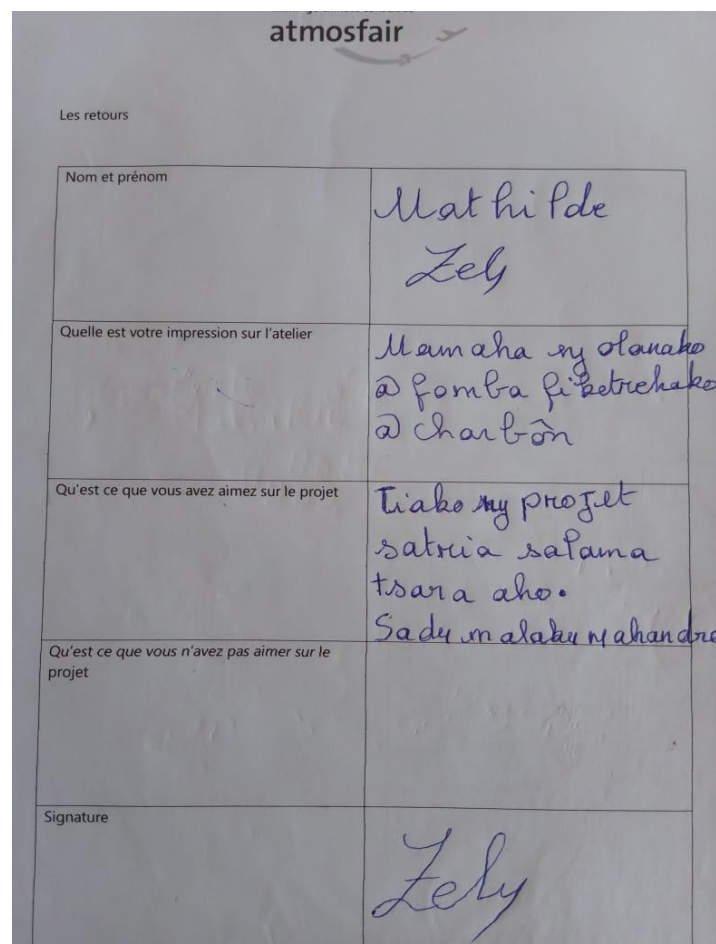 atmosfair
Les retours
Nom et prénom
Mathilde
Zely
Quelle est votre impression sur l'atelier
Mamaha ny olanako
@ fomba fiketrehako
@ charbôn
Qu'est ce que vous avez aimez sur le projet
Tiako ny projet
satria salama
tsara aho.
Sady malaky mahandro
Qu'est ce que vous n'avez pas aimer sur le
projet
Signature
Zely